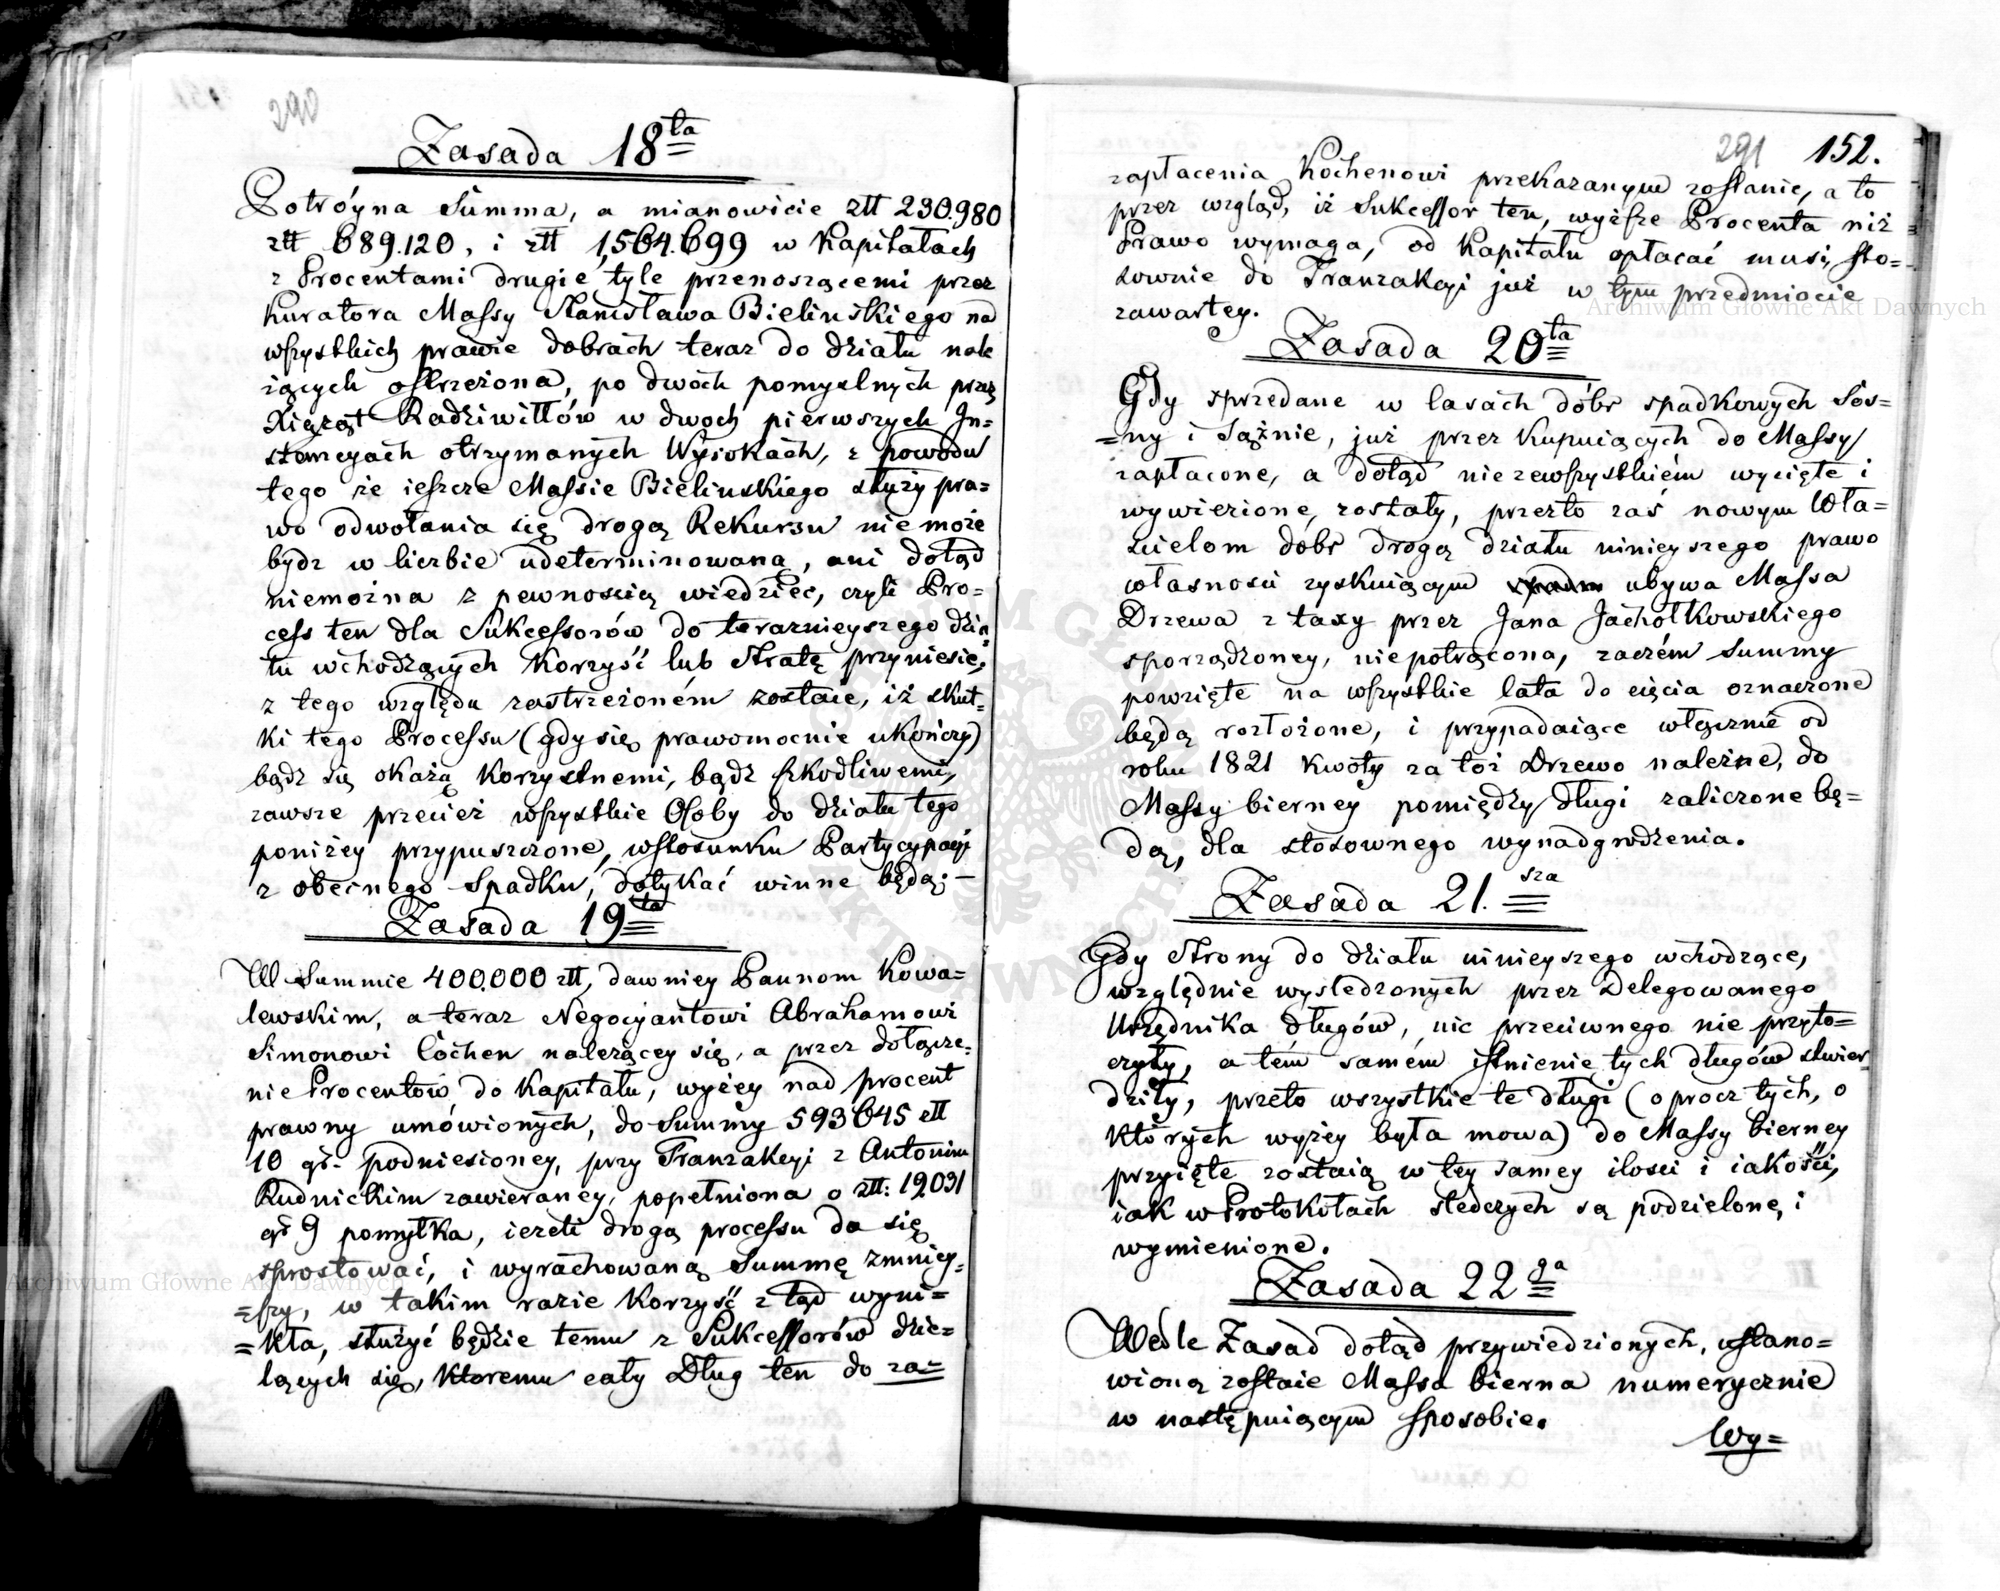 290
Zasada 18ta
Potróyna Summa, a mianowicie złł 230.980
złł 689.120, i złł 1,564.699 w Kapitałach
z Procentami drugie tyle przenoszącemi przez
Kuratora Massy Stanisława Bielińskiego nad
wszystkich prawie dobrach teraz do działu nale
żących ostrzeżona, po dwoch pomyslnych przez
Xiążąt Radziwiłłów w dwoch pierwszych In=
stancyach otrzymanych Wyrokach, z powodu
tego że ieszcze Massie Bielinskiego służy pra=
wo odwołania się drogą Rekursu nie może
bydz w liczbie udeterminowaną, ani dotąd
niemożna z pewnością wiedzieć, czyli Pro=
cess ten dla Sukcessorów do teraznieyszego dzia=
łu wchodzących Korzyść lub Stratę przyniesie,
z tego względu zastrzeżoném zostaie, iż skut=
ki tego Processu (gdy się prawomocnie ukończy)
bądz się okażą Korzystnemi, bądz szkodliwemi,
zawsze przecież wszystkie Osoby do działu tego
poniżey przypuszczone, wstosunku Partycypacyi
z obecnego Spadku, dotykać winne będą; —
Zasada 19ta
W Summie 400.000 złł, dawniey Pannom Kowa=
lewskim, a teraz Negocyantowi Abrahamowi
Simonowi Cochen należącey się, a przez dołącze=
nie Procentów do Kapitału, wyżey nad procent
prawny umówionych, do Summy 593645 złł
10 gr. podniesioney, przy Tranzakcyi z Antonim
Rudnickim zawieraney, popełniona o złł: 19,031
gr 9 pomyłka, ieżeli drogą processu da się
sprostować, i wyrachowaną Summę zmniey=
=szy, w takim razie Korzyść z tąd wyni=
=kła, służyć będzie temu z Sukcessorów dzie=
lących się, Ktoremu cały Dług ten do za=
291 152.
zapłacenia Kochenowi przekazanym zostanie, a to
przez wzgląd, iż Sukcessor ten, wyższe Procenta niż
Prawo wymaga, od Kapitału opłacać musi, sto=
sownie do Tranzakcyi już w tym przedmiocie
zawartey.
Zasada 20ta
Gdy sprzedane w lasach dóbr spadkowych Sos=
=ny i Sążnie, już przez Kupuiących do Massy
zapłacone, a dotąd niezewszystkiém wycięte i
wywiezione, zostały, przezto zaś nowym Wła=
scielom dobr drogą działu ninieyszego prawo
własności zyskuiącym ubywa Massa
Drzewa z taxy przez Jana Jachołkowskiego
sporządzoney, niepotrącona, zaczém Summy
powzięte na wszystkie lata do cięcia oznaczone
będą rozłożone, i przypadaiące włącznie od
roku 1821 kwoty za toż Drzewo należne, do
Massy bierney pomiędzy długi zaliczone bę=
dą, dla stosownego wynadgrodzenia.
Zasada 21.sza
Gdy Strony do działu ninieyszego wchodzące,
względnie wysledzonych przez Delegowanego
Urzędnika długów, nic przeciwnego nie przyto=
czyły, a tém samém istnienie tych długów stwier=
dziły, przeto wszystkie te długi (oprocz tych, o
Których wyżey była mowa) do Massy bierney
przyięte zostaią w tey samey ilości i iakości,
iak w Protokołach sledczych są podzielone, i
wymienione.
Zasada 22ga
Wedle Zasad dotąd przywiedzionych, ustano=
wioną zostaie Massa bierna numerycznie
w następuiącym sposobie.
Wy=
Archiwum Główne Akt Dawnych
Archiwum Główne Akt Dawnych
ARCHIWUM GŁÓWNE AKT DAWNYCH